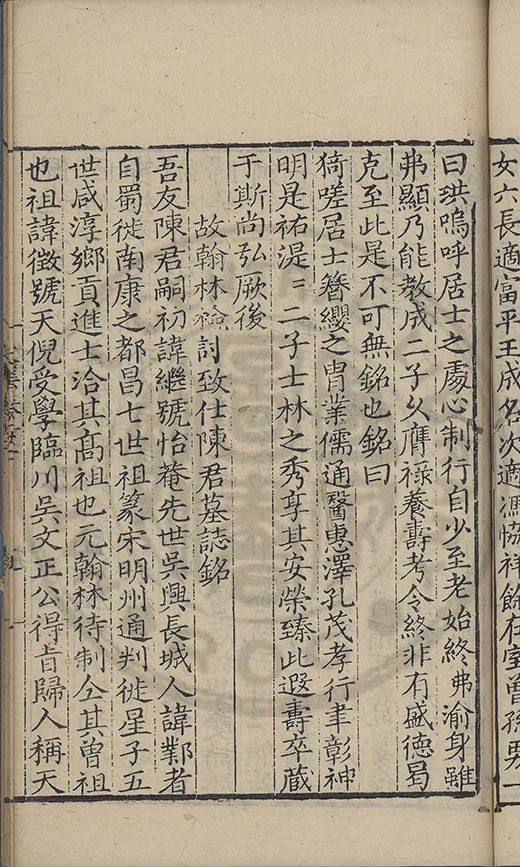 女六長適富平王成名次適馮恊祥餘在室曾孫男一
曰珙嗚呼居士之處心制行自少至老始終弗渝身雖
弗顯乃能教成二子以膺祿養壽考令終非有盛德曷
克至此是不可無銘也銘曰
猗嗟居士簪纓之胄業儒通醫惠澤孔茂孝行聿彰神
明是祐湜〻二子士林之秀享其安榮臻此遐壽卒蔵
于斯尚弘厥後
故翰林檢討致仕陳君墓誌銘
吾友陳君嗣初諱繼號怡菴先世吳興長城人諱鄴者
自蜀徙南康之都昌七世祖篆宋明州通判徙星子五
世咸淳鄉貢進士洽其髙祖也元翰林待制仝其曾祖
也祖諱徵號天倪受學臨川吳文正公得肯歸人稱天